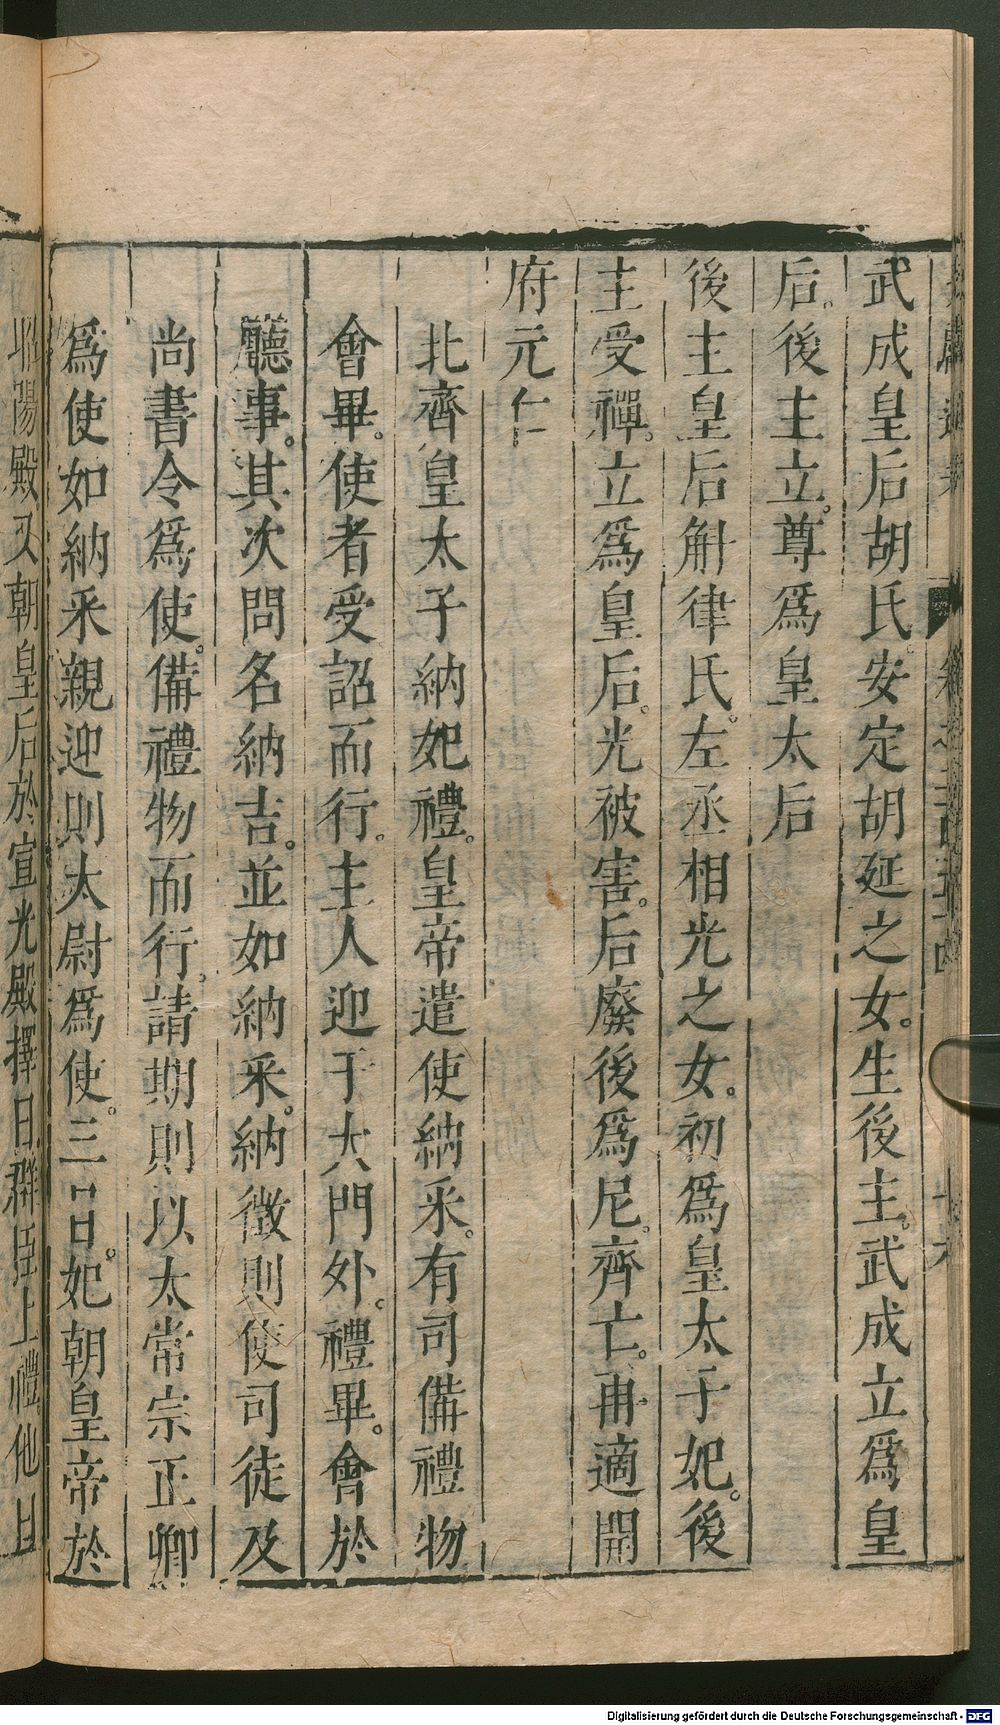 武成皇后胡氏安定胡延之女。生後主。武成立爲皇
后。後主立。尊爲皇太后
後主皇后斛律氏。左丞相光之女。初爲皇太子妃。後
主受禪。立爲皇后。光被害。后廢後爲尼。齊亡。再適開
府元仁
北齊皇太子納妃禮。皇帝遣使納采。有司備禮物
會畢。使者受詔而行。主人迎于大門外。禮畢。會於
聽事。其次問名納吉。並如納采。納徵則使司徒及
尚書令爲使。備禮物而行。請期則以太常宗正卿
爲使如納采親迎則太尉爲使。三日。妃朝皇帝於
昭陽殿又朝皇后於宣光殿擇日群臣上禮。他日
Digitalisierung gefördert durch die Deutsche Forschungsgemeinschaft - DFG